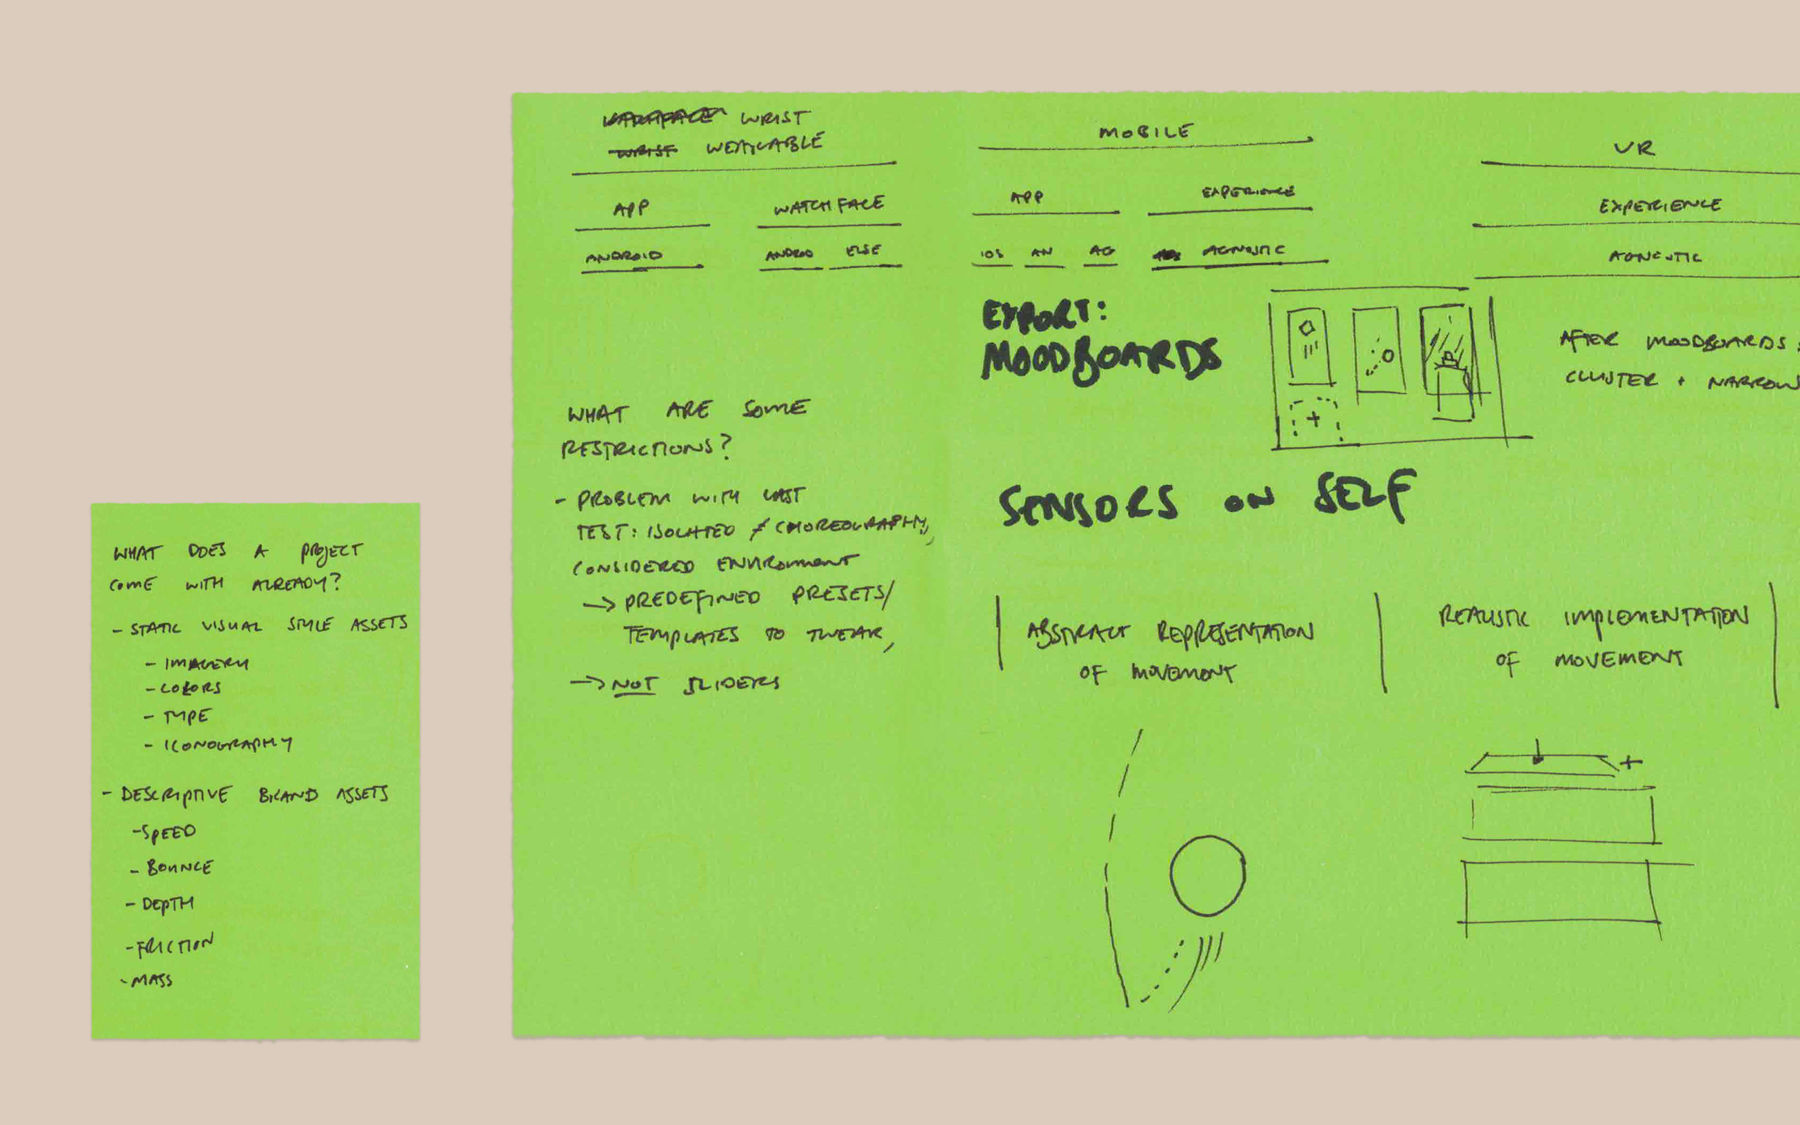 WHAT DOES A PROJECT
COME WITH ALREADY?
- STATIC VISUAL STYLE ASSETS
- IMAGERY
- COLORS
- TYPE
- ICONOGRAPHY
- DESCRIPTIVE BRAND ASSETS
- SPEED
- BOUNCE
- DEPTH
- FRICTION
- MASS
WATCHFACE WRIST
WRIST WEARABLE
APP
WATCHFACE
ANDROID
ANDROID
ELSE
WHAT ARE SOME
RESTRICTIONS?
- PROBLEM WITH LAST
TEST: ISOLATED ≠ CHOREOGRAPHY,
CONSIDERED ENVIRONMENT
→ PREDEFINED PRESETS/
TEMPLATES TO TWEAK,
→ NOT SLIDERS
MOBILE
APP
EXPERIENCE
IOS
AN
AG
AGNOSTIC
VR
EXPERIENCE
AGNOSTIC
EXPORT:
MOODBOARDS
AFTER MOODBOARDS:
CLUSTER + NARROW
SENSORS ON SELF
ABSTRACT REPRESENTATION
OF MOVEMENT
REALISTIC IMPLEMENTATION
OF MOVEMENT